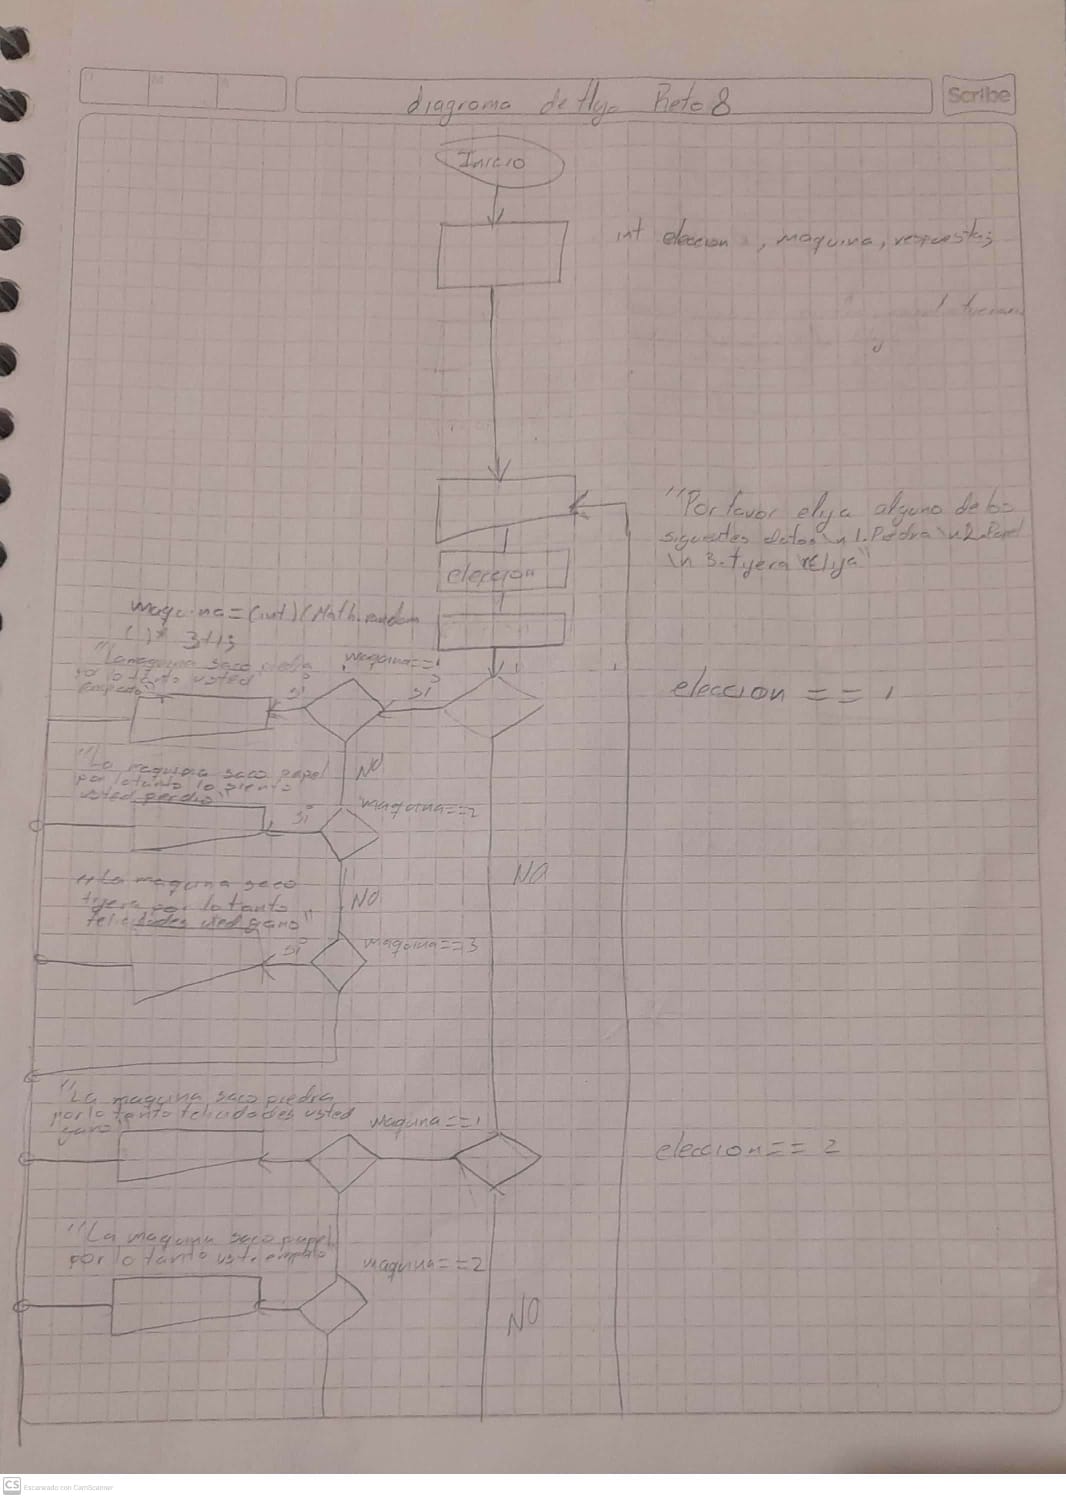 diagrama de flujo Reto 8
Scribe
Inicio
int eleccion , maquina, respuesta;
"Por favor elija alguno de los
siguientes datos \n 1. Piedra \n 2. Papel
\n 3. tijera \n Elija"
eleccion
maquina = (int) (Math.random
( ) * 3+1;
"La maquina saco piedra
por lo tanto usted
empato"
maquina==1
si
si
eleccion == 1
NO
"La maquina saco papel
por lo tanto lo siento
usted perdio"
maquina==2
si
NO
NO
"La maquina saco
tijera por lo tanto
felicidades usted gano"
maquina==3
si
"La maquina saco piedra
por lo tanto felicidades usted
gano"
maquina==1
eleccion== 2
"La maquina saco papel
por lo tanto usted empato
maquina==2
NO
CS Escaneado con CamScanner